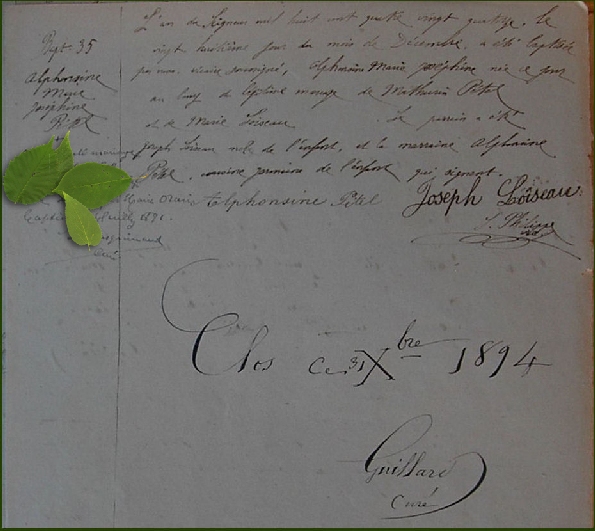 Bapt 35
Alphonsine
Marie
Joséphine
Pitel
L'an du Seigneur mil huit cent quatre vingt quatorze, le
vingt huitième jour du mois de Décembre, a été baptisée
par nous, vicaire soussigné, Alphonsine Marie Joséphine née ce jour
au bourg de légitime mariage de Mathurin Pitel
et de Marie Loiseau. Le parrain a été
Joseph Loiseau oncle de l'enfant, et la marraine Alphonsine
Pitel, cousine germaine de l'enfant qui signent.
Alphonsine Pitel Joseph Loiseau
Philippe
Clos ce 31 Xbre 1894
Guillard
curé